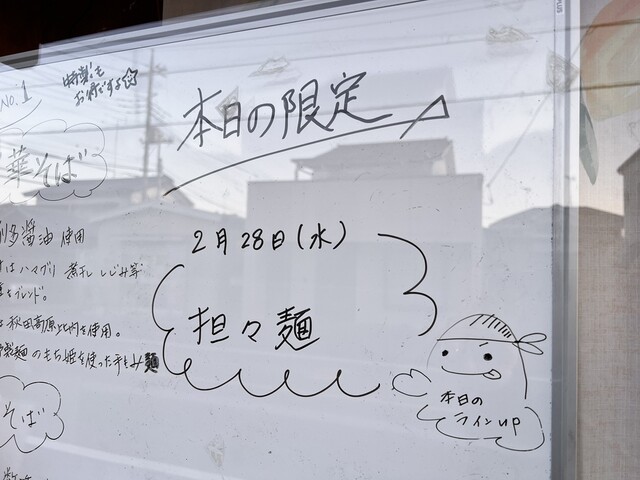 No.1
特製も
お得ですよ☆
本日の限定
華そば
醤油 使用
2月28日(水)
はハマグリ 煮干 しじみ等
をブレンド。
担々麺
秋田高原比内を使用。
製麺のもち姫を使った手もみ麺
そば
本日の
ラインup